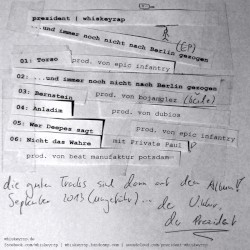 president | whiskeyrap
...und immer noch nicht nach Berlin gezogen
(EP)
01: Torso prod. von epic infantry
02: ...und immer noch nicht nach Berlin gezogen
prod. von epic infantry
03: Bernstein prod. von bojanglez (beide)
04: Anladim prod. von dubios
05: Wer Deepes sagt prod. von epic infantry
06: Nicht das Wahre mit Private Paul
prod. von beat manufaktur potsdam
die guten Tracks sind dann auf dem Album!
September 2013 (ungefähr)... de
de President